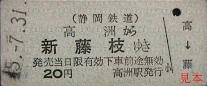 5.-7.31.
(静岡鉄道)
高洲から
新藤枝ゆき
発売当日限有効下車前途無効
20円 高洲駅発行
高
↓
藤
見本